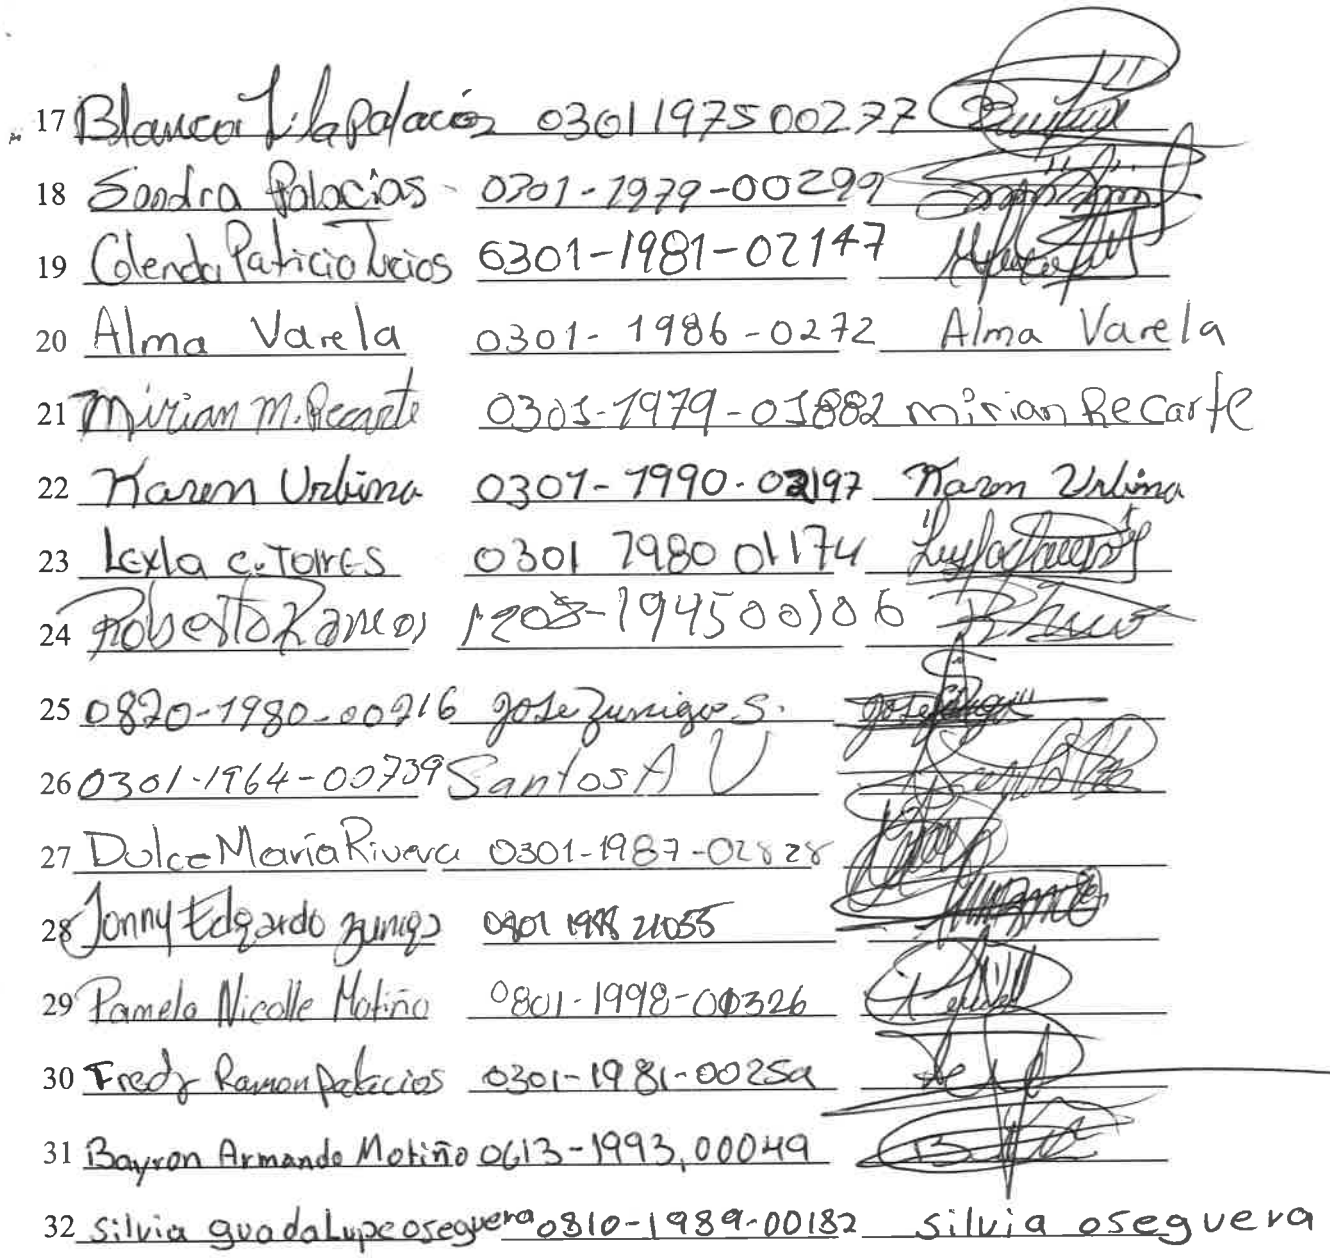 17 Blanca Lila Palacios 0301197500277
18 Sandra Palacios - 0301-1979-00299
19 Glenda Patricia 6301-1981-02147
20 Alma Varela 0301-1986-0272 Alma Varela
21 Mirian M. Recarte 0301-1979-01882 mirian Recarte
22 Karen Urbina 0301-1990-02197 Karen Urbina
23 Leyla C. Torres 0301 1980 01174
24 Roberto Ramos 1208-194500106
25 0820-1980-00716 Jose Zuniga S.
26 0301-1964-00739 Santos A V
27 Dulce María Rivera 0301-1987-02828
28 Jonny Edgardo Zuniga 0801 1988 21055
29 Pamela Nicolle Motiño 0801-1998-00326
30 Fredy Ramon Palacios 0301-1981-00259
31 Bayron Armando Motiño 0613-1993,00049
32 silvia guadaLupe oseguera 0810-1989-00182 silvia oseguera